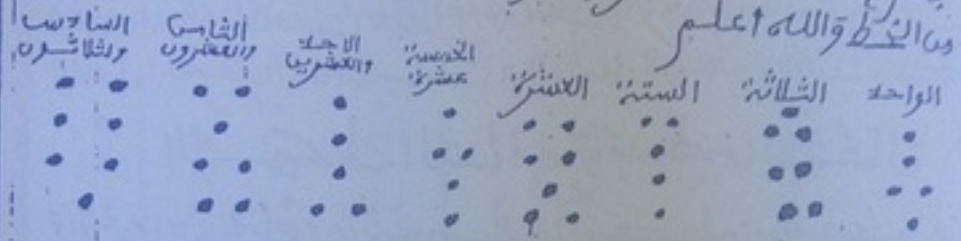 من الخط والله اعلم
الواحد الثلاثة الستة العشرة الخمسة عشرة الاحد والعشرين الثامن والعشرون السادس والثلاثون